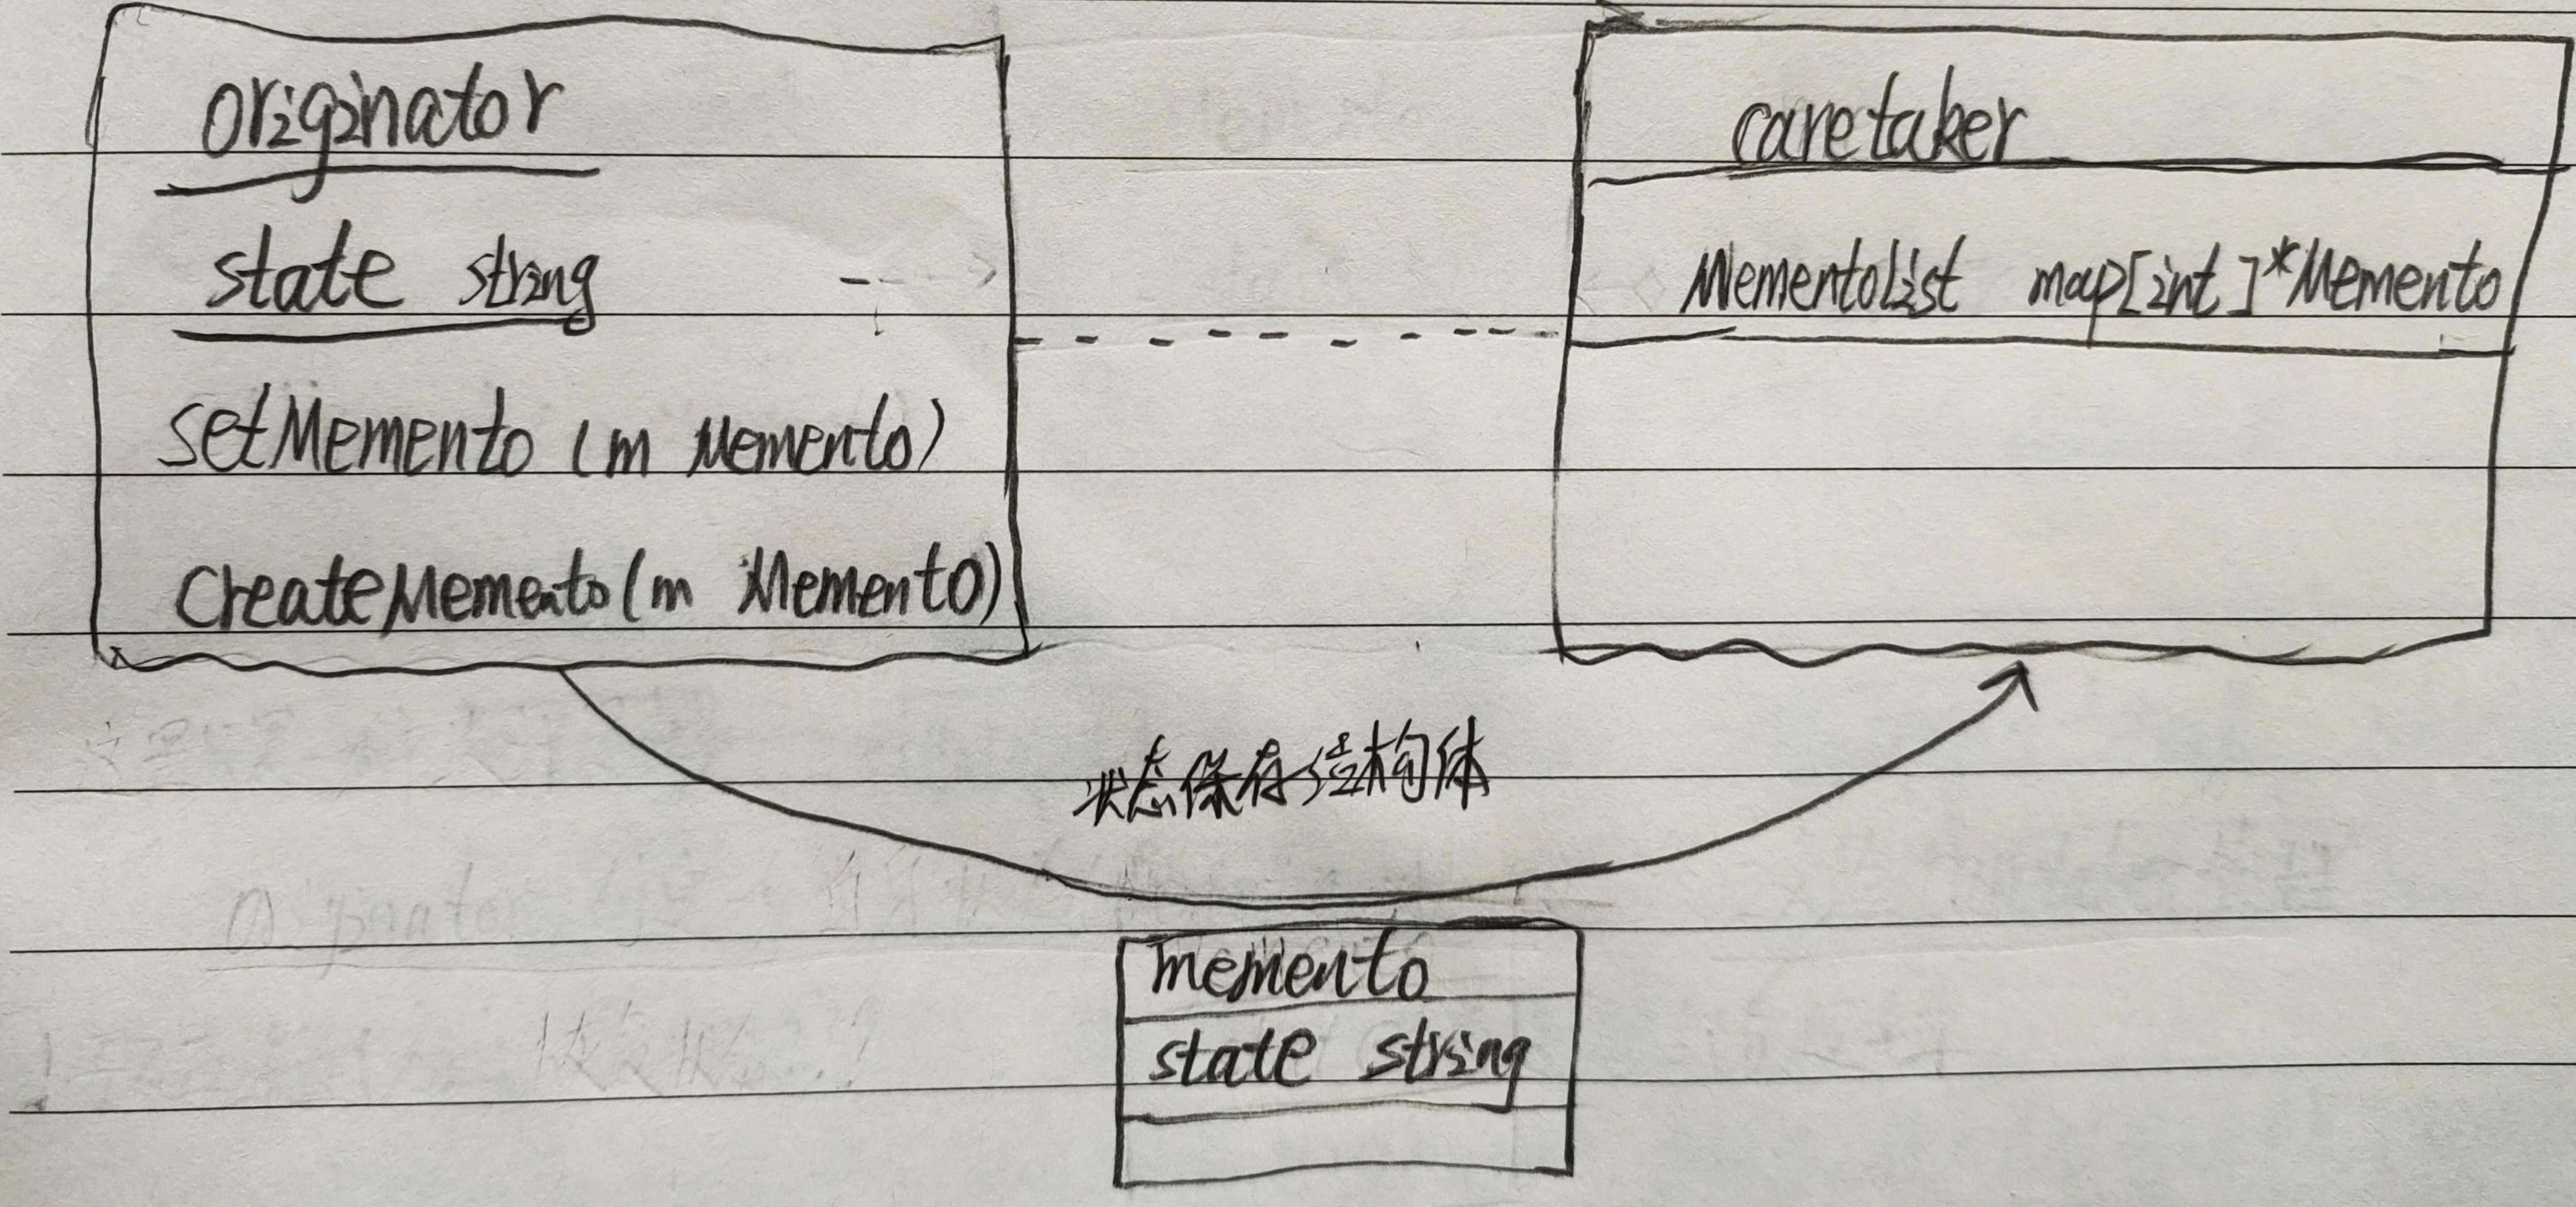 originator
state string
setMemento (m Memento)
CreateMemento (m Memento)
caretaker
MementoList map[int]*Memento
状态保存结构体
memento
state string